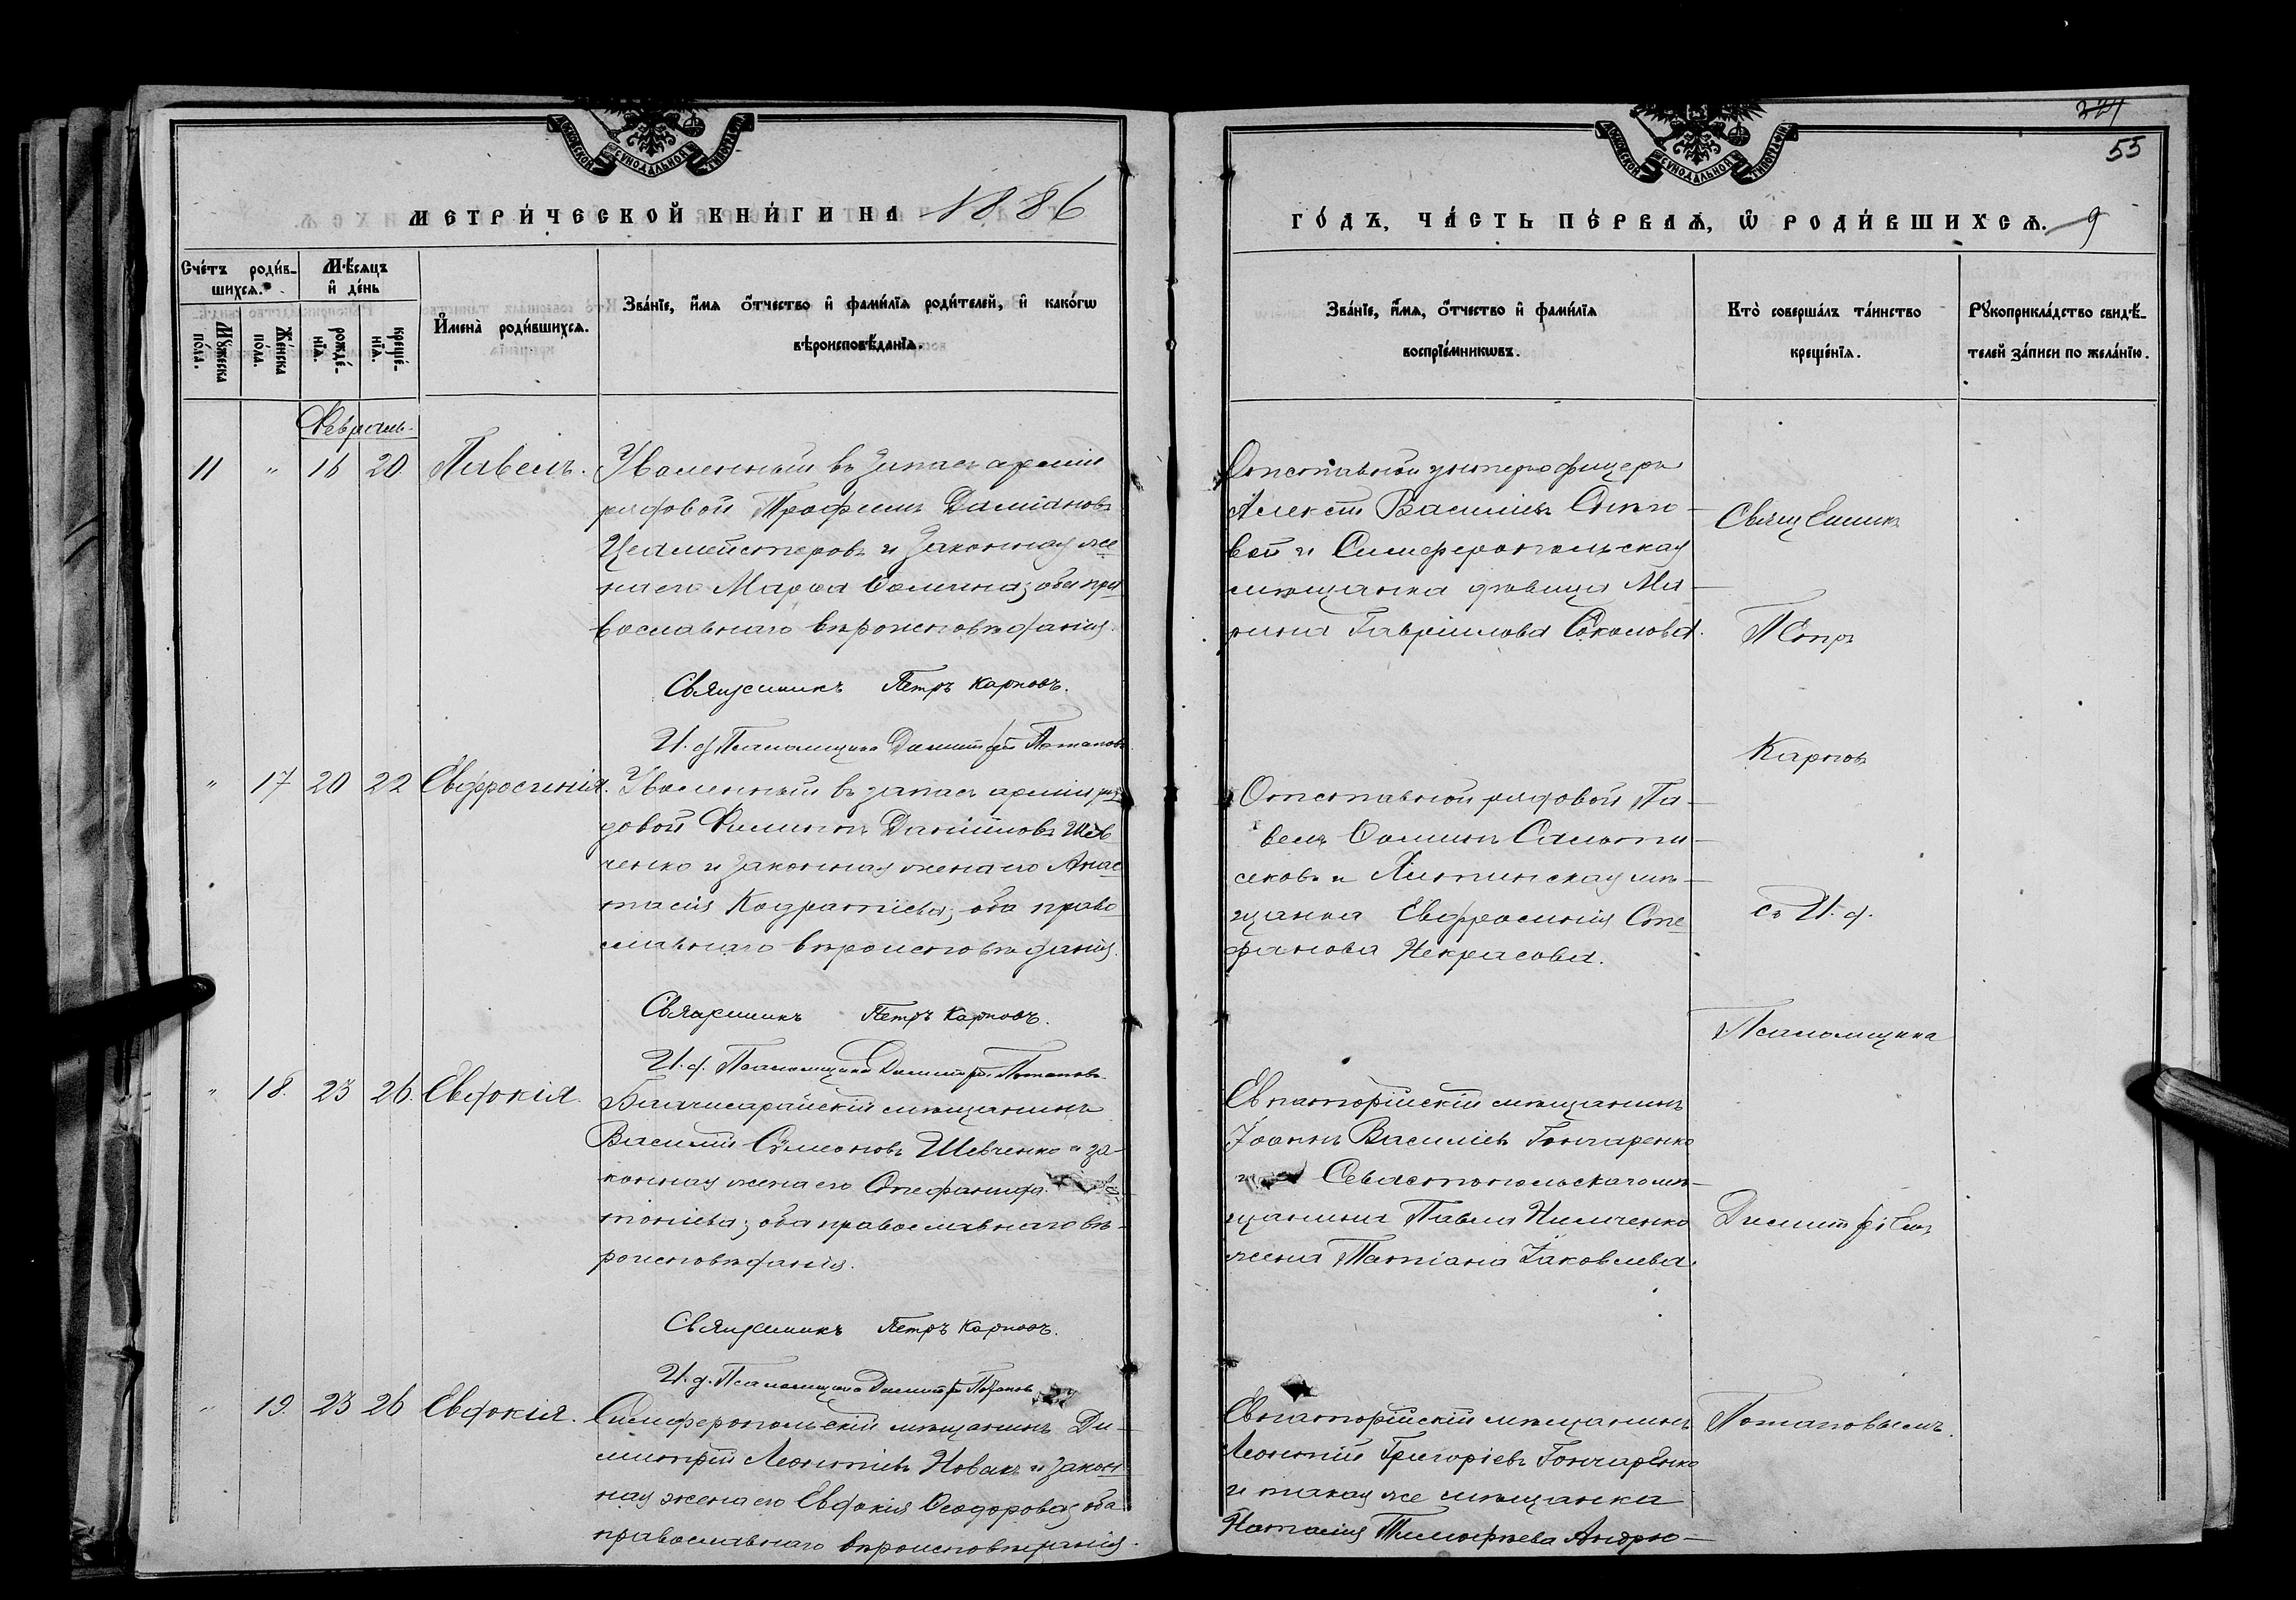 244
55
МОСКОВСКОЙ СУНОДАЛЬНОЙ ТИПОГРАФІИ
МОСКОВСКОЙ СУНОДАЛЬНОЙ ТИПОГРАФІИ
МЕТРИ́ЧЕСКОЙ КНИ́ГИ НА 1886
ГО́ДЪ, ЧА́СТЬ ПЕ́РВАѦ, Ѡ҆ РОДИ́ВШИХСѦ. 9
Сче́тъ роди́в-
шихсѧ.
Мѣ́сѧцъ
и҆ де́нь
Мꙋ́жеска по́ла.
Же́нска по́ла.
рожде́-
нїѧ.
креще́-
нїѧ.
И҆мена̀ роди́вшихсѧ.
Зва́нїе, и҆́мѧ ѻ҆́тчество и҆ фами́лїѧ роди́телей, и҆ како́гѡ
вѣроисповѣ́данїѧ.
Зва́нїе, и҆́мѧ, ѻ҆́тчество и҆ фами́лїѧ
воспрїе́мникѡвъ.
Кто̀ соверша́лъ та́инство
креще́нїѧ.
Рꙋкоприкла́дство свидѣ́-
телей за́писи по жела́нїю.
Февраль.
11 " 16 20 Павелъ.
Уволенный въ запасъ арміи
рядовой Трофимъ Даміановъ
Цеамейстеровъ и законная же
на его Марѳа Ѳомина; оба пра
вославнаго вѣроисповѣданія.
Священникъ Петръ Карповъ.
И. д. Псаломщика Димитрій Потаповъ
Отставной унтеръ офицеръ
Алексѣй Василіевъ
вой и Симферопольская
мѣщанка дѣвица Ма-
рина Гавріилова Соколова.
Священникъ
Петръ
Карповъ
съ И. д.
Псаломщика
Димитріемъ
Потаповымъ.
" 17 20 22 Евфросинія.
Уволенный въ запасъ арміи ря
довой Филиппъ Даніиловъ Шев
ченко и законная жена его Анас
тасія Кодратіева; оба право
славнаго вѣроисповѣданія.
Священникъ Петръ Карповъ.
И. д. Псаломщика Димитрій Потаповъ
Отставной рядовой Па-
велъ Ѳоминъ
сековъ и мѣ-
щанка Евфросинія Сте
фанова Некрасова.
" 18. 23 26. Евдокія.
Бахчисарайскій мѣщанинъ
Василій Сѵмеоновъ Шевченко и за-
конная жена его Стефанида
тоніева; оба православнаго вѣ-
роисповѣданія.
Священникъ Петръ Карповъ.
И. д. Псаломщика Димитрій Потаповъ
Евпаторійскій мѣщанинъ
Іоаннъ Василіевъ Гончаренко
и Севастопольскаго мѣ-
щанина Павла Ильченко
жена Татіана Іаковлева.
" 19. 23 26 Евдокія.
Симферопольскій мѣщанинъ Ди-
митрій Леонтіевъ Новакъ и закон
ная жена его Евдокія Ѳеодорова; оба
православнаго вѣроисповѣданія.
Евпаторійскій мѣщанинъ
Леонтій Григоріевъ Гончаренко
и такая же мѣщанка
Наталія Тимофеева Андрю-